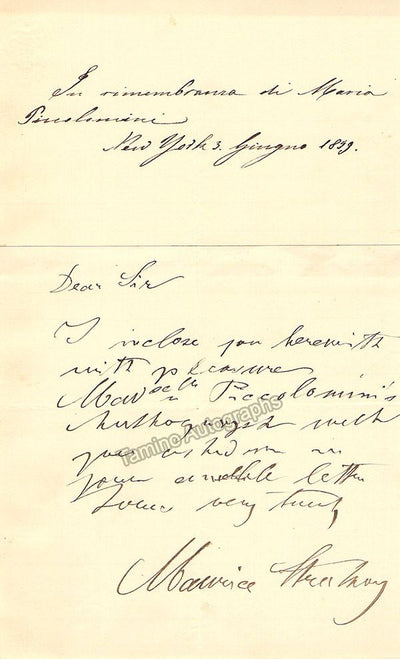 In rimembranza di Maria
Piccolomini
New York 3. Giugno 1859.
Dear Sir
I inclose you herewith
with pleasure
Mad^selle Piccolomini's
Authograph
you asked me in
your amable letter
Yours very truly
Maurice Strakosy
Tamino Autographs